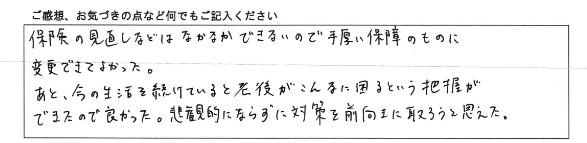 ご感想、お気づきの点など何でもご記入ください
保険の見直しなどはなかなかできないので手厚い保障のものに
変更できてよかった。
あと、今の生活を続けていると老後がこんなに困るという把握が
できたので良かった。悲観的にならずに対策を前向きに取ろうと思えた。